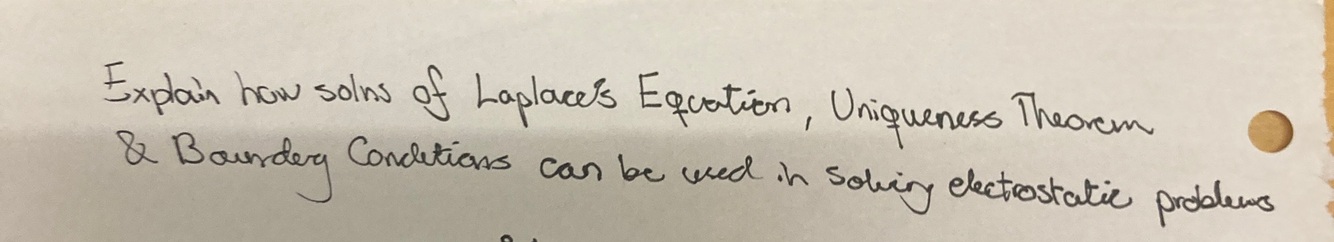 Explain how solns of Laplace's Equation, Uniqueness Theorem
& Boundary Conditions can be used in solving electrostatic problems